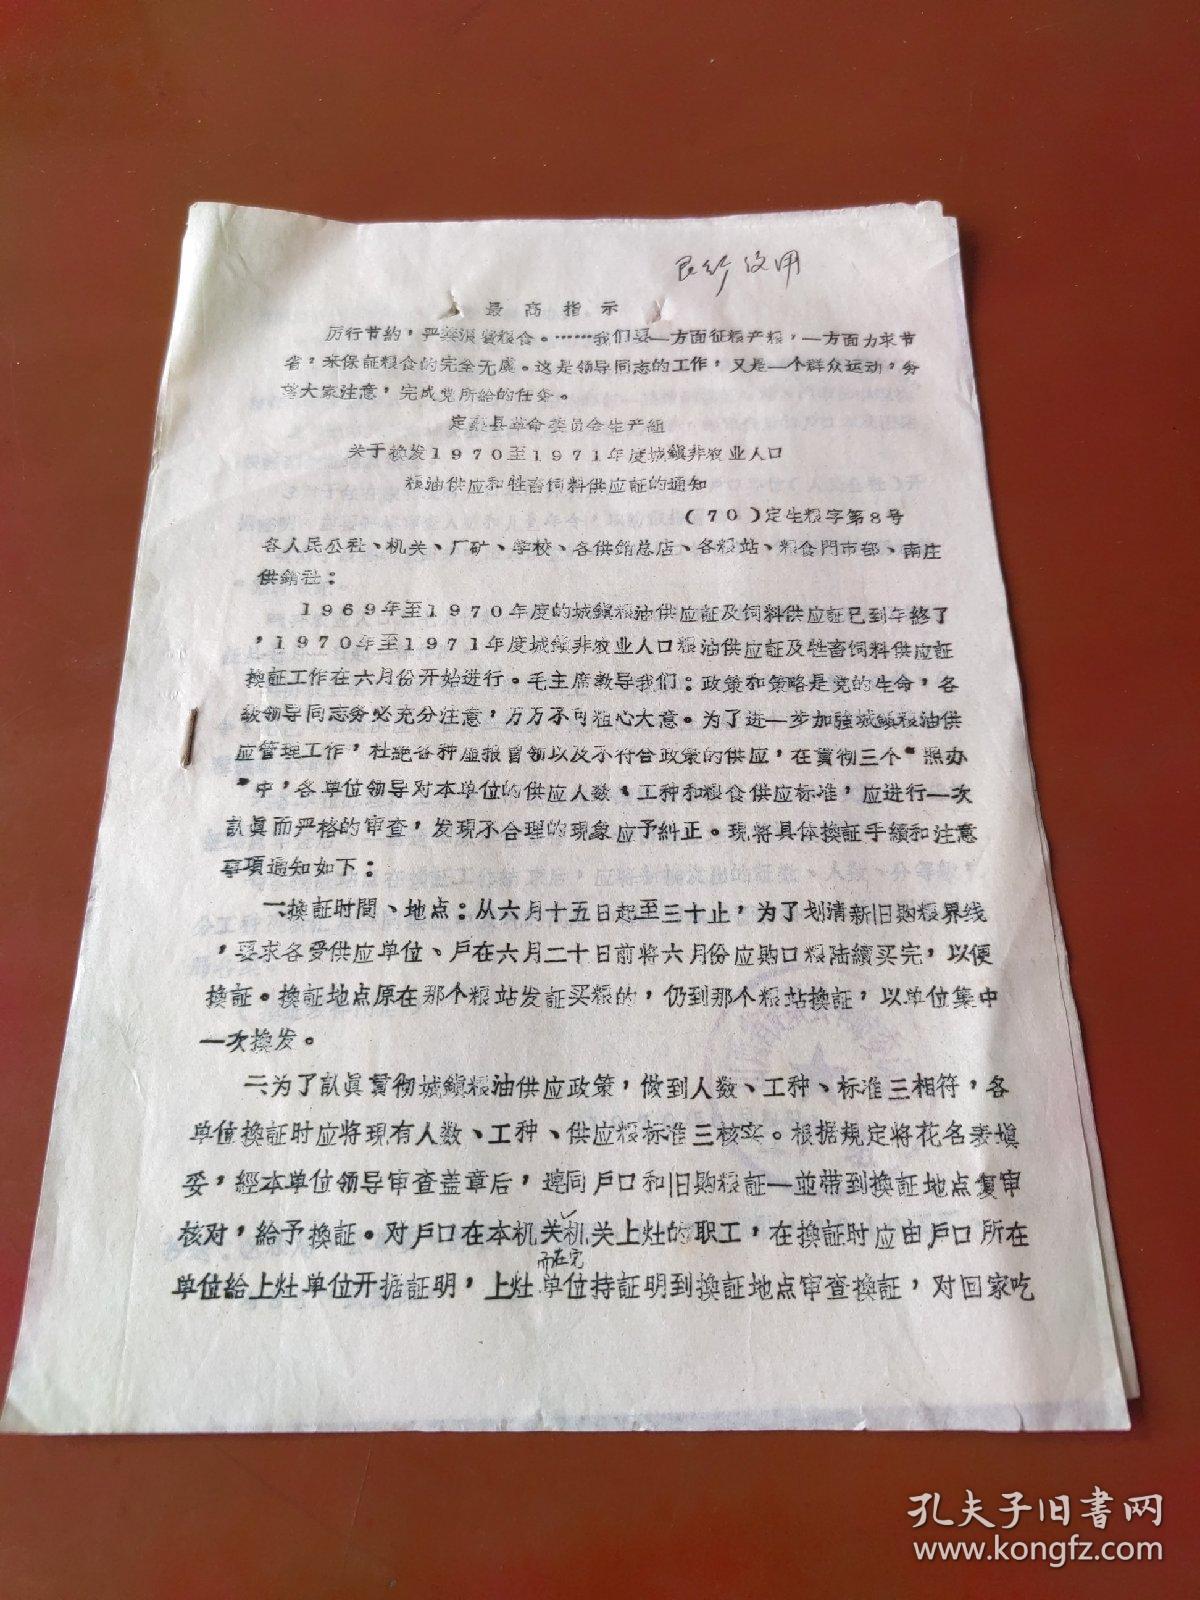 最高指示
厉行节約，严禁浪費粮食。……我们要一方面征粮产粮，一方面力求节
省，来保証粮食的完全无虞。这是领导同志的工作，又是一个群众运动，务
望大家注意，完成党所給的任务。
定襄县革命委员会生产組
关于换发1970至1971年度城鎮非农业人口
粮油供应和牲畜饲料供应証的通知
（70）定生粮字第8号
各人民公社、机关、厂矿、学校、各供銷总店、各粮站、粮食門市部、南庄
供銷社：
1969年至1970年度的城鎮粮油供应証及饲料供应証已到年終了
，1970年至1971年度城鎮非农业人口粮油供应証及牲畜饲料供应証
换証工作在六月份开始进行。毛主席教导我们：政策和策略是党的生命，各
級领导同志务必充分注意，万万不可粗心大意。为了进一步加強城鎮粮油供
应管理工作，杜絕各种虚报冒领以及不符合政策的供应，在貫彻三个“照办
”中，各单位领导对本单位的供应人数、工种和粮食供应标准，应进行一次
訍眞而严格的审查，发現不合理的現象应予糾正。現将具体换証手續和注意
事項通知如下：
一、换証时間、地点：从六月十五日起至三十止，为了划清新旧购粮界线
，要求各受供应单位、戶在六月二十日前将六月份应购口粮陆續买完，以便
换証。换証地点原在那个粮站发証买粮的，仍到那个粮站换証，以单位集中
一次换发。
二、为了訍眞貫彻城鎮粮油供应政策，做到人数、工种、标准三相符，各
单位换証时应将現有人数、工种、供应粮标准三核实。根据規定将花名表塡
妥，經本单位领导审查盖章后，連同戶口和旧购粮証一並带到换証地点复审
核对，給予换証。对戶口在本机关机关上灶的职工，在换証时应由戶口所在
单位給上灶单位开据証明，上灶单位持証明到换証地点审查换証，对回家吃
孔夫子旧书网
www.kongfz.com